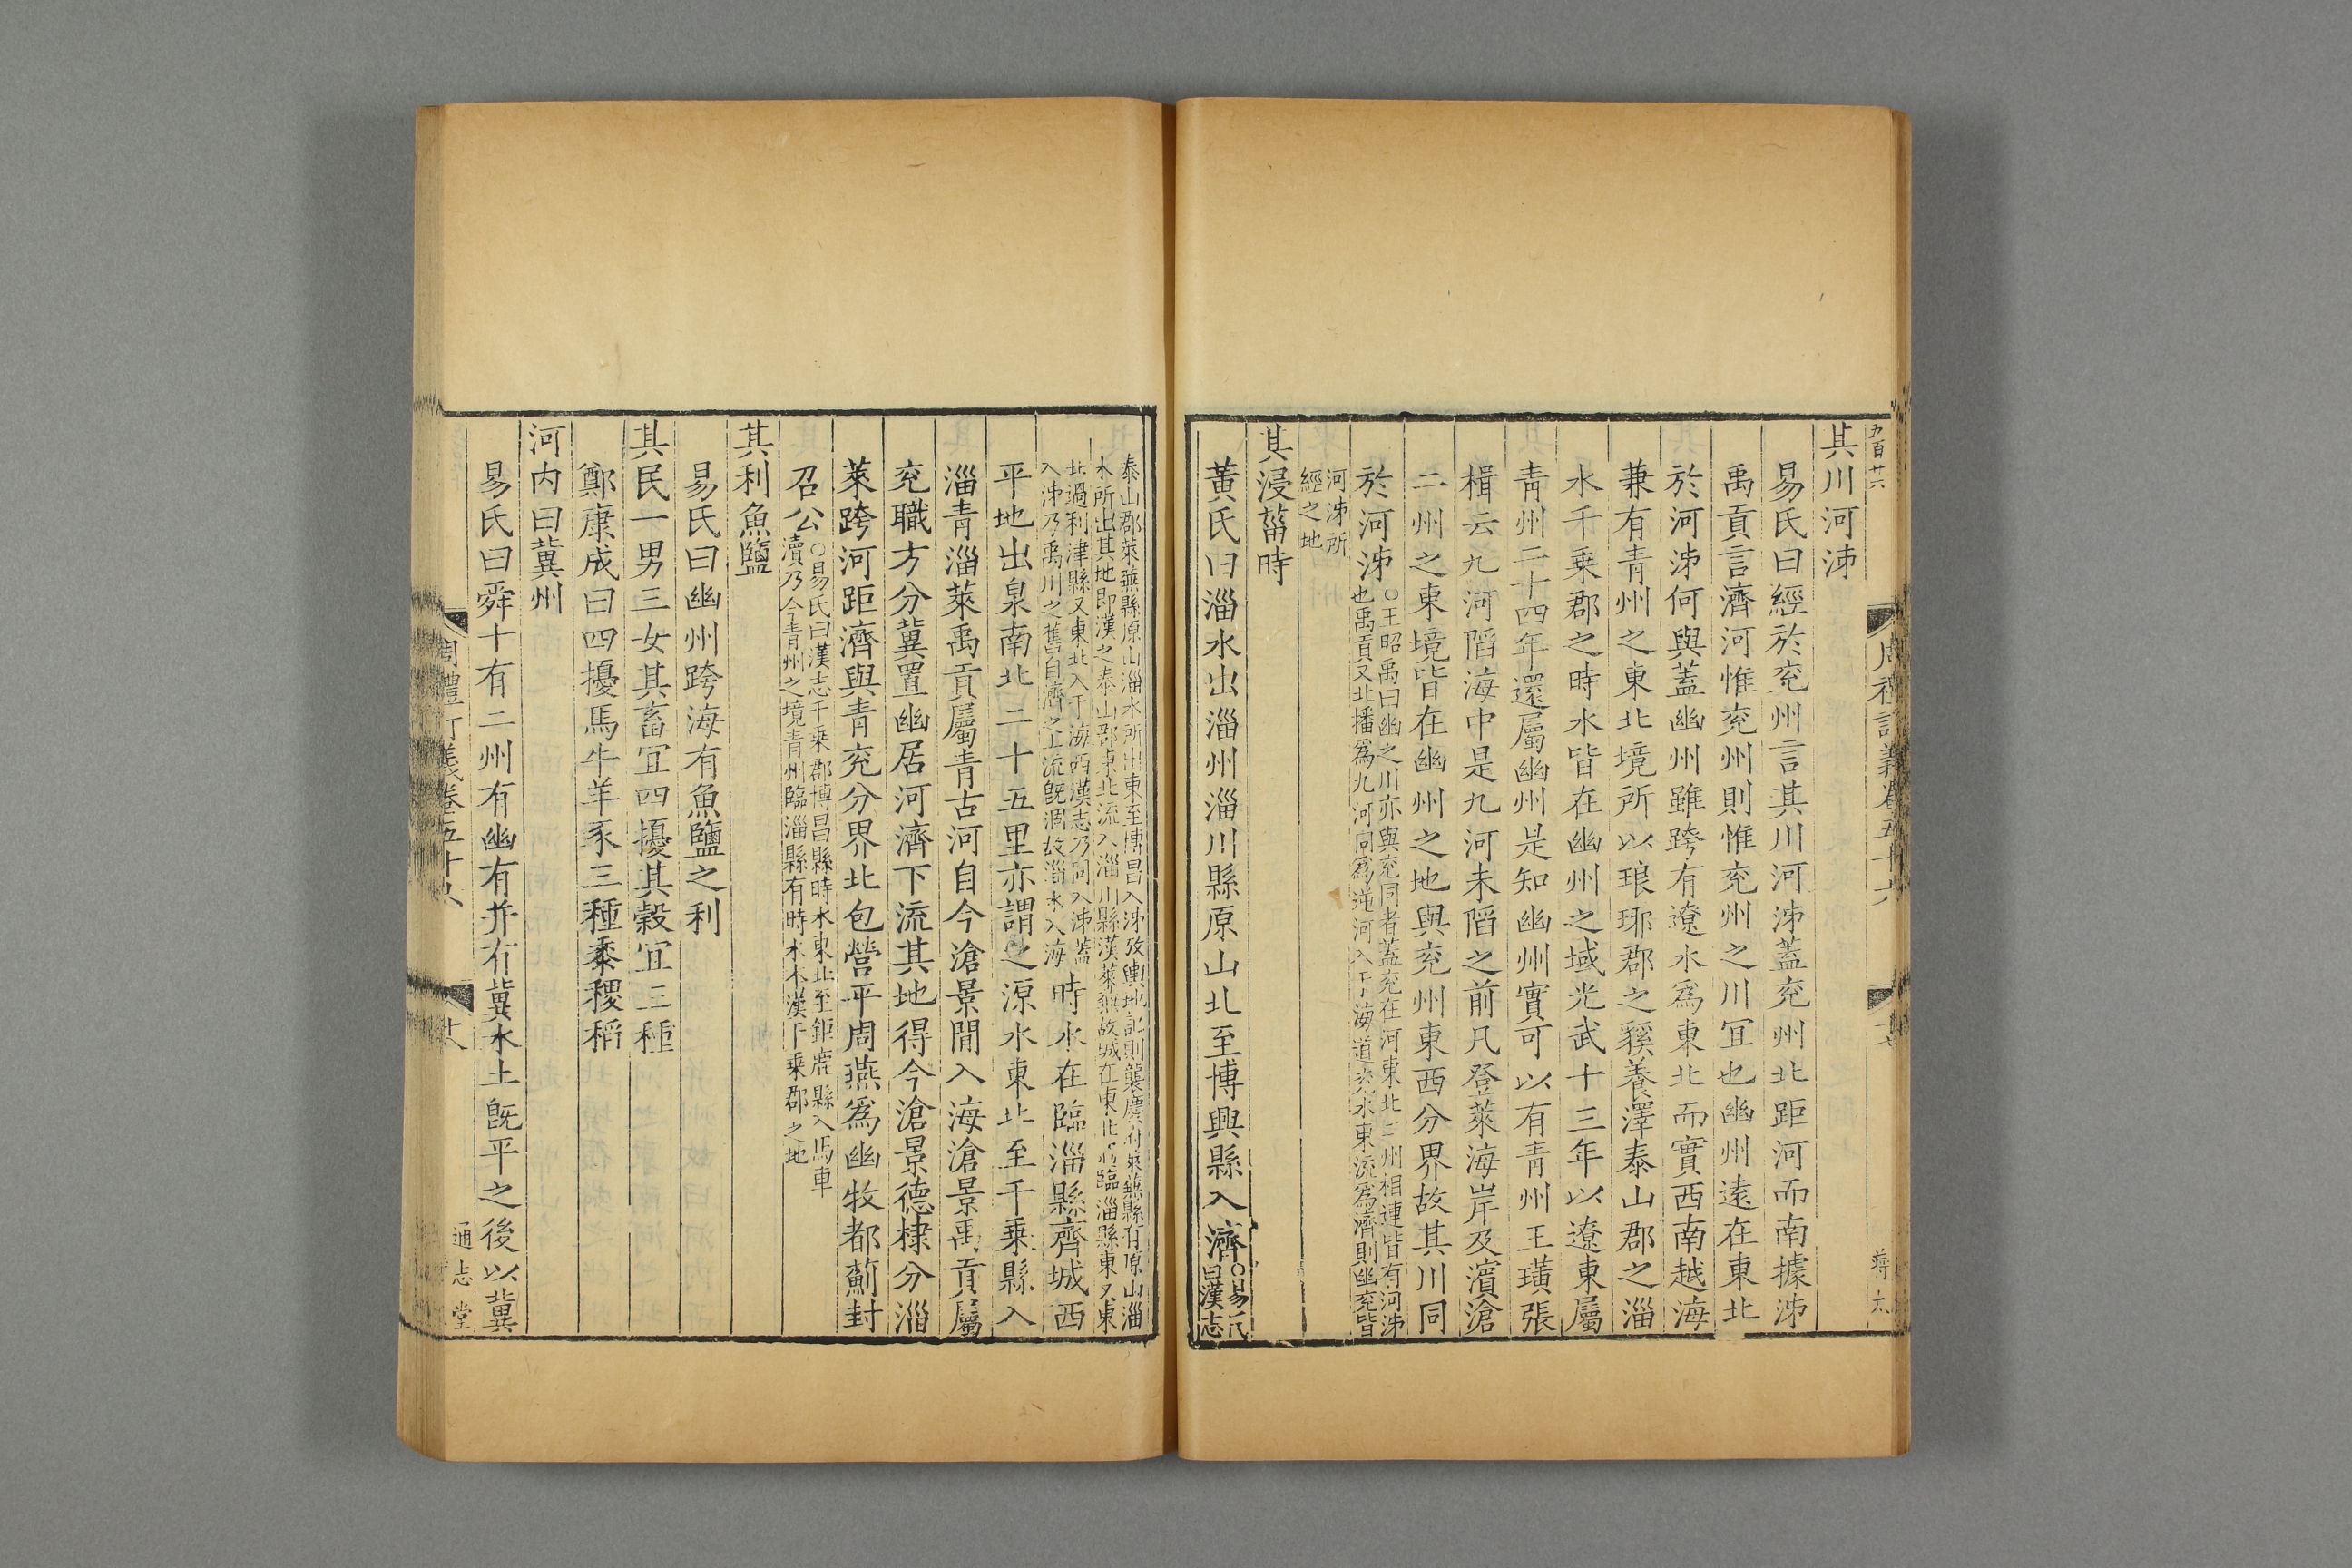 五百廿六
其川河泲
易氏曰經於兖州言其川河泲蓋兖州北距河而南據泲
禹貢言濟河惟兖州則惟兖州之川冝也幽州遠在東北
於河泲何與蓋幽州雖跨有遼水爲東北而實西南越海
兼有青州之東北境所以琅琊郡之貕養澤泰山郡之淄
水千乗郡之時水皆在幽州之域光武十三年以遼東屬
青州二十四年還屬幽州是知幽州實可以有青州王璜張
楫云九河䧟海中是九河未䧟之前凡登萊海岸及濱滄
二州之東境皆在幽州之地與兖州東西分界故其川同
於河泲
○王昭禹曰幽之川亦與兖同者蓋兖在河東北二州相連皆有河泲
也禹貢又北播爲九河同爲逆河入于海道沇水東流爲濟則幽兖皆
河泲所
經之地
其浸菑時
黃氏曰淄水出淄州淄川縣原山北至博興縣入濟
○易氏
曰漢志
周禮訂義卷五十六
蔣太
泰山郡萊蕪縣原山淄水所出東至博昌入泲攷輿地記則襲慶府萊蕪縣有原山淄
水所出其地即漢之泰山郡東北流入淄川縣漢萊蕪故城在東北 臨淄縣東又東
北過利津縣又東北入于海西漢志乃 入泲蓋
入泲乃禹川之舊自濟之上流旣涸故淄水入海
時水在臨淄縣齊城西
平地出泉南北二十五里亦謂之源水東北至千乗縣入
淄青淄萊禹貢屬青古河自今滄景閒入海滄景禹貢屬
兖職方分冀置幽居河濟下流其地得今滄景德棣分淄
萊跨河距濟與青兖分界北包營平周燕爲幽牧都薊封
召公
○易氏曰漢志千乗郡博昌縣時水東北至鉅鹿縣入馬車
瀆乃今青州之境青州臨淄縣有時水本漢千乗郡之地
其利魚鹽
易氏曰幽州跨海有魚鹽之利
其民一男三女其畜冝四擾其穀冝三種
鄭康成曰四擾馬牛羊豕三種黍稷稻
河内曰冀州
易氏曰舜十有二州有幽有并有冀水土旣平之後以冀
周禮訂義卷五十六
通志堂